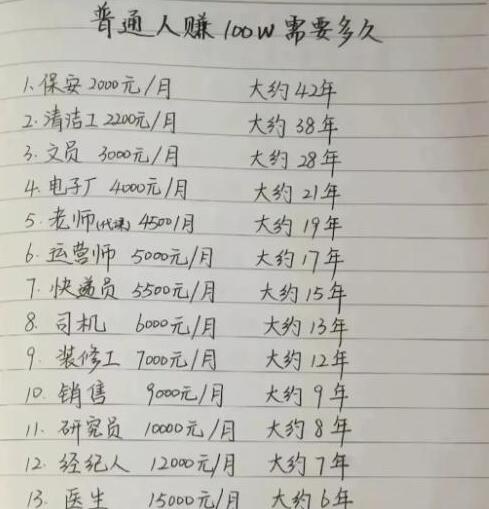 普通人赚100W需要多久
1、保安 2000元/月 大约42年
2、清洁工 2200元/月 大约38年
3、文员 3000元/月 大约28年
4、电子厂 4000元/月 大约21年
5、老师(代课) 4500/月 大约19年
6、运营师 5000元/月 大约17年
7、快递员 5500元/月 大约15年
8、司机 6000元/月 大约13年
9、装修工 7000元/月 大约12年
10、销售 9000元/月 大约9年
11、研究员 10000元/月 大约8年
12、经纪人 12000元/月 大约7年
13、医生 15000元/月 大约6年